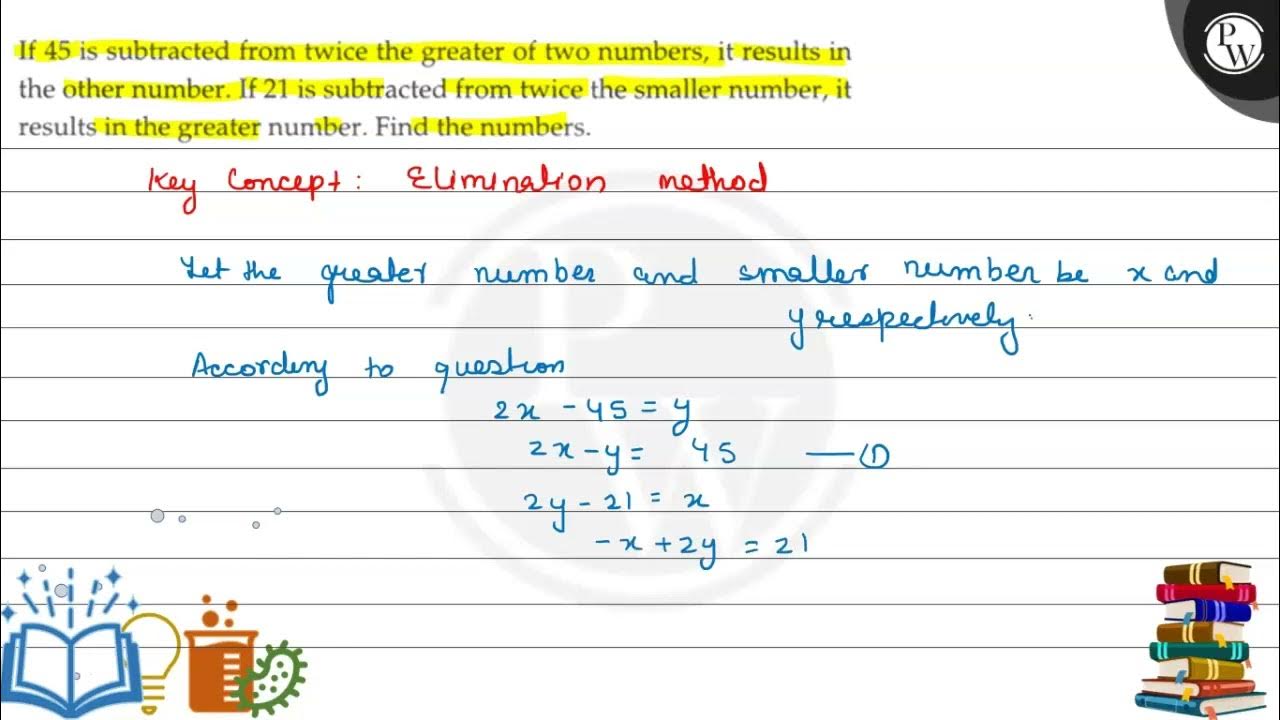 If 45 is subtracted from twice the greater of two numbers, it results in
the other number. If 21 is subtracted from twice the smaller number, it
results in the greater number. Find the numbers.
Key Concept: Elimination method
Let the greater number and smaller number be x and
y respectively.
According to question
2x - 45 = y
2x - y = 45 —①
2y - 21 = x
-x + 2y = 21
PW
PW